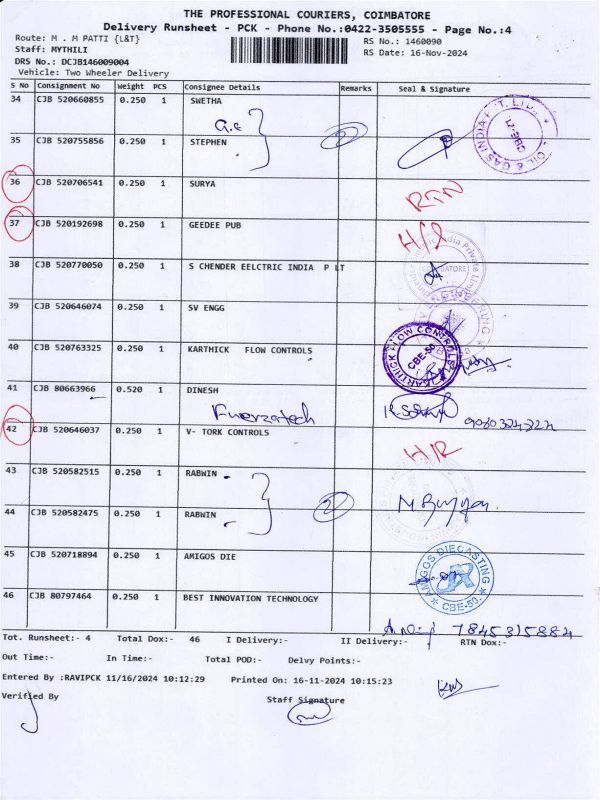 THE PROFESSIONAL COURIERS, COIMBATORE
Delivery Runsheet - PCK - Phone No.:0422-3505555 - Page No.:4
Route: M . M PATTI {L&T}
RS No.: 1460090
Staff: MYTHILI
RS Date: 16-Nov-2024
DRS No.: DCJB146009004
Vehicle: Two Wheeler Delivery
S No Consignment No Weight PCS Consignee Details Remarks Seal & Signature
34 CJB 520660855 0.250 1 SWETHA
35 CJB 520755856 0.250 1 STEPHEN 2
36 CJB 520706541 0.250 1 SURYA RTN
37 CJB 520192698 0.250 1 GEEDEE PUB
38 CJB 520770050 0.250 1 S CHENDER EELCTRIC INDIA P LT
39 CJB 520646074 0.250 1 SV ENGG
40 CJB 520763325 0.250 1 KARTHICK FLOW CONTROLS
KARTHICK FLOW CONTROLS CBE-50
41 CJB 80663966 0.520 1 DINESH
42 CJB 520646037 0.250 1 V- TORK CONTROLS
43 CJB 520582515 0.250 1 RABWIN
44 CJB 520582475 0.250 1 RABWIN 2
45 CJB 520718894 0.250 1 AMIGOS DIE
AMIGOS DIECASTING CBE-50.
46 CJB 80797464 0.250 1 BEST INNOVATION TECHNOLOGY
7845315884
Tot. Runsheet:- 4 Total Dox:- 46 I Delivery:- II Delivery:- RTN Dox:-
Out Time:- In Time:- Total POD:- Delvy Points:-
Entered By :RAVIPCK 11/16/2024 10:12:29 Printed On: 16-11-2024 10:15:23
Verified By Staff Signature